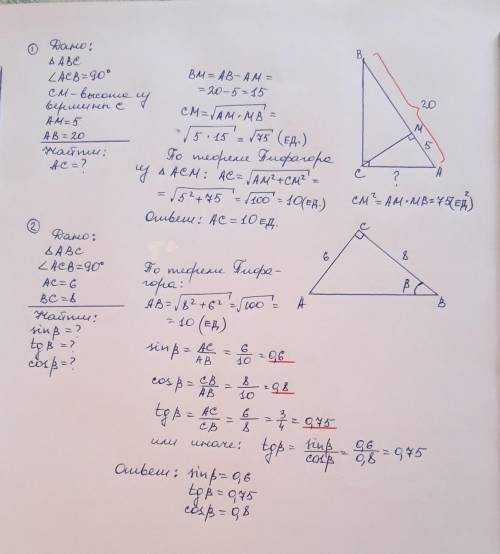 ① Дано:
△ABC
∠ACB=90°
CM-высота из
вершины C
AM=5
AB=20
Найти:
AC=?
BM=AB-AM=
=20-5=15
CM=√AM·MB=
=√5·15=√75 (ЕД.)
По теореме Пифагора
из △ACM: AC=√AM²+CM²=
=√5²+75=√100=10(ЕД.)
Ответ: AC=10 ЕД.
B
20
M
5
C
?
A
CM²=AM·MB=75(ЕД²)
② Дано:
△ABC
∠ACB=90°
AC=6
BC=8
Найти:
sinβ=?
tgβ=?
cosβ=?
По теореме Пифа-
гора:
AB=√8²+6²=√100=
=10 (ЕД)
C
6
8
β
A
B
sinβ=AC/AB=6/10=0,6
cosβ=CB/AB=8/10=0,8
tgβ=AC/CB=6/8=3/4=0,75
или иначе: tgβ=sinβ/cosβ=0,6/0,8=0,75
Ответ: sinβ=0,6
tgβ=0,75
cosβ=0,8